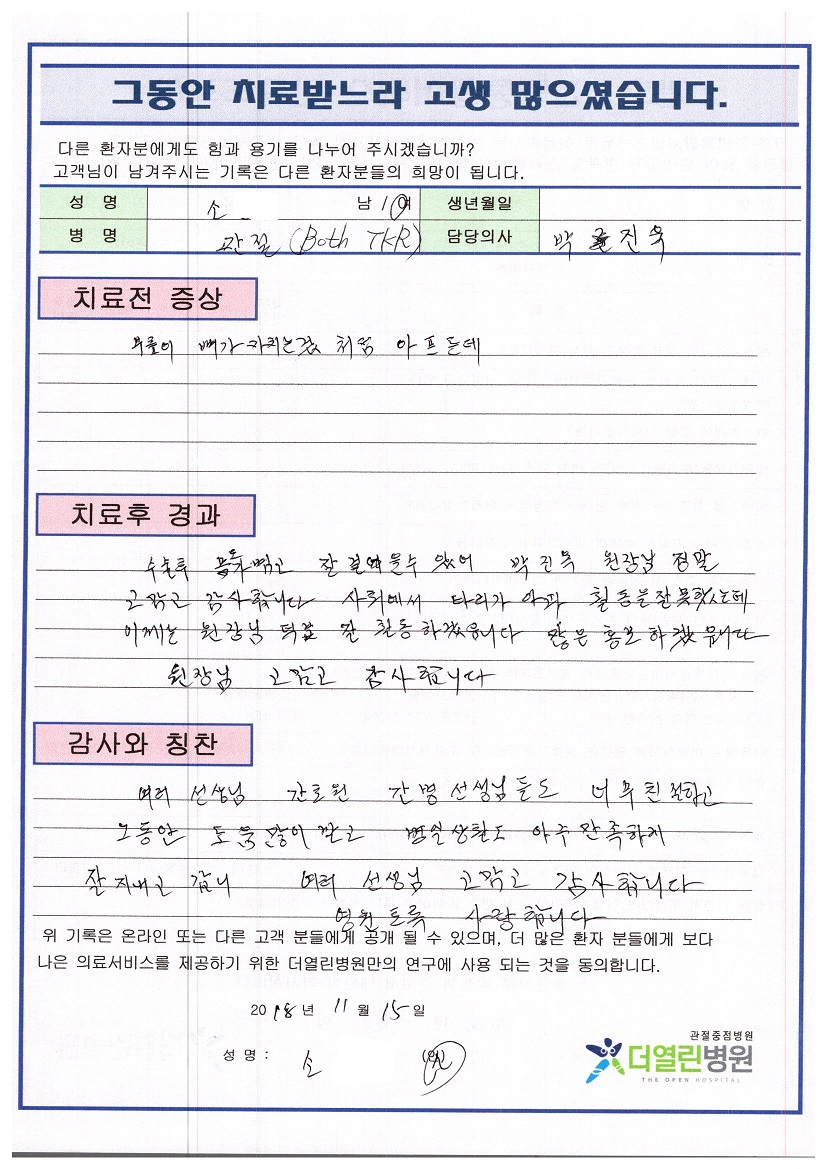 그동안 치료받느라 고생 많으셨습니다.
다른 환자분에게도 힘과 용기를 나누어 주시겠습니까?
고객님이 남겨주시는 기록은 다른 환자분들의 희망이 됩니다.
성 명 소 남 / 여 생년월일
병 명 관절 (Both TKR) 담당의사 박 진욱
치료전 증상
무릎이 뼈가 처럼 아프든데
치료후 경과
수술후 잘 걸어을수 있어 박진욱 원장님 정말
고맙고 감사합니다 사회에서 다리가 아파 활동을 잘 못했는데
이제는 원장님 덕분 잘 활동하겠읍니다 많은 홍보 하겠읍니다
원장님 고맙고 감사합니다
감사와 칭찬
여러 선생님 간호원 간병선생님들도 너무 친절하고
그동안 도움많이 받고 병실생활도 아주 만족하게
잘 지내고 갑니 여러 선생님 고맙고 감사합니다
영원토록 사랑합니다
위 기록은 온라인 또는 다른 고객 분들에게 공개 될 수 있으며, 더 많은 환자 분들에게 보다
나은 의료서비스를 제공하기 위한 더열린병원만의 연구에 사용 되는 것을 동의합니다.
2018년 11월 15일
성 명 : 소 (인)
관절중점병원
더열린병원
THE OPEN HOSPITAL